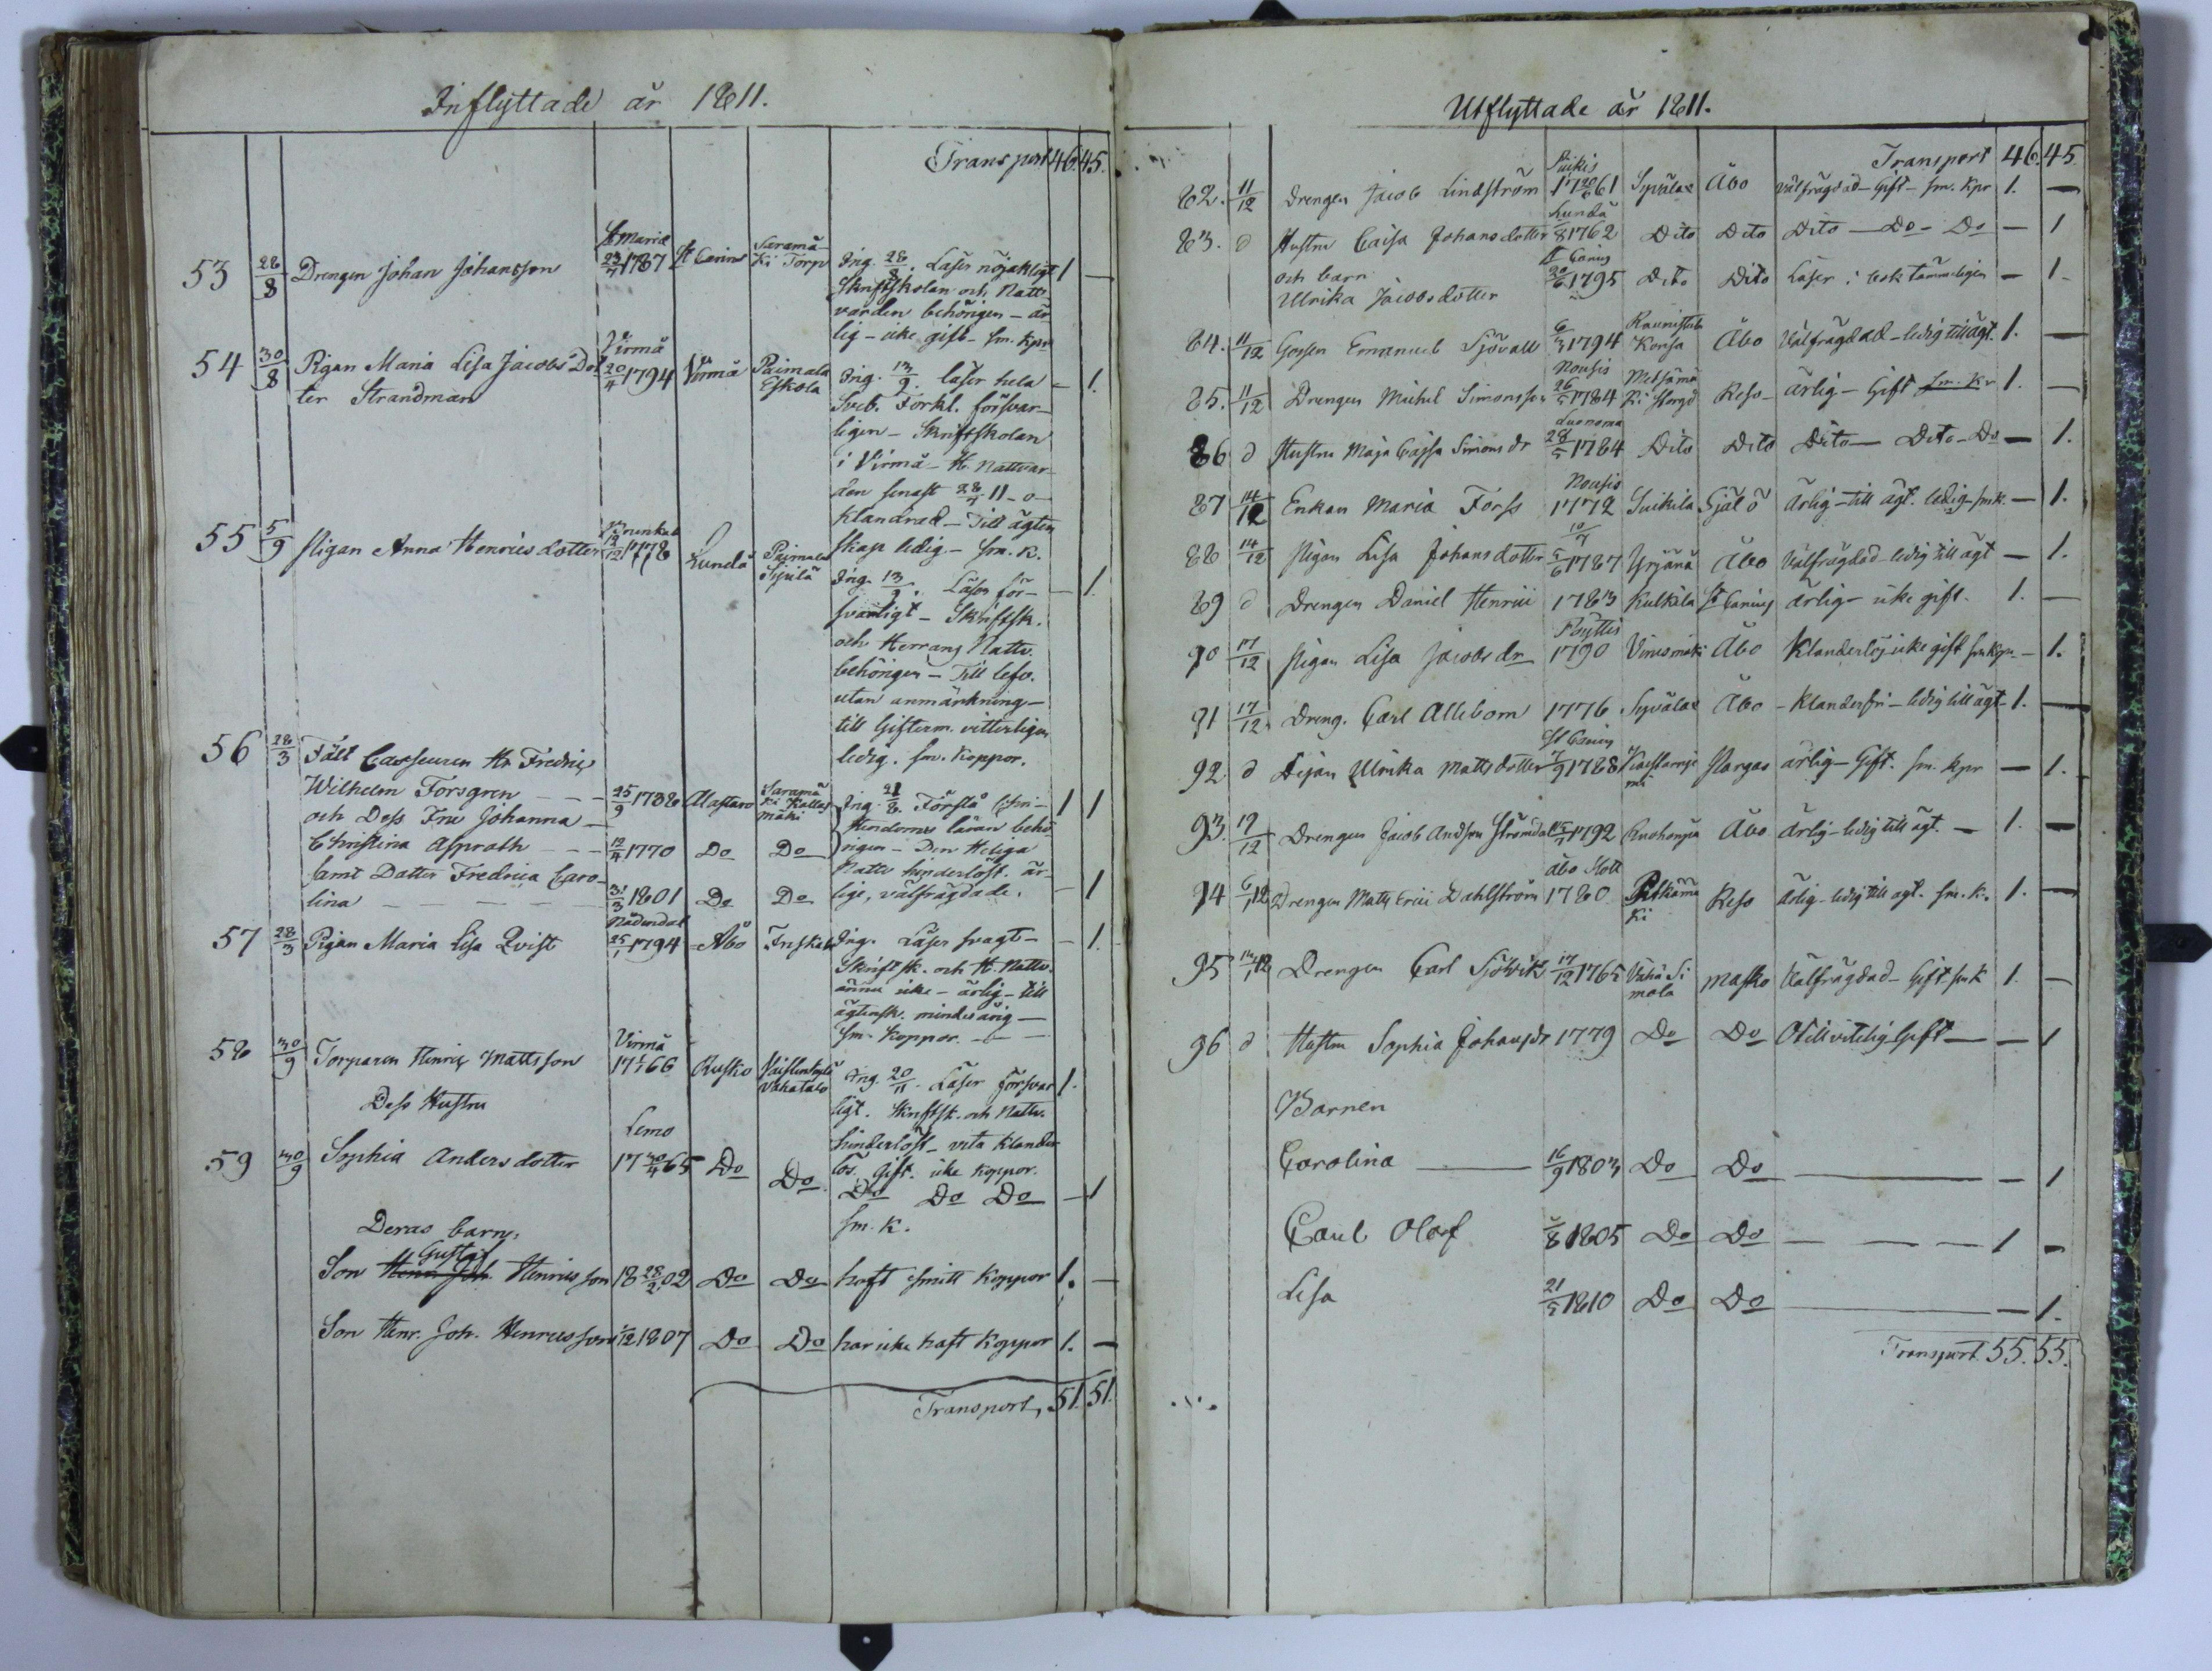 Inflyttade år 1811.
Transport 46. 45.
53 28/8 Drengen Johan Johansson St Mariæ 23/7 1787 St Carins Saramä-
ki Torp Ing. 28/8. Läser nöjakligt 1 —
Skriftskolan och Nattv-
varden behörigen – är-
lig – icke gift – sm. kpr
54 30/8 Pigan Maria Lisa Jacobs Dot- Virmå 20/4 1794 Virmå Paimala Ing. 13/9. läser hela — 1.
ter Strandman Eskola
Sveb. Förkl. försvar-
ligen – Skriftskolan
i Virmå – H. Nattvar-
den senast 28/4 11 – o-
klandrad – Till ägten-
skap ledig – sm. K.
55 5/9 Pigan Anna Henrics dotter 12/12 1778 Lundå Paimala
Sipilä Ing. 13/9. Läser för- — 1.
svarligt – Skriftsk.
och Herrans Nattv.
behörigen – Till lefv.
utan anmärkning –
till Gifterm. vetterligen
ledig. sm. koppor.
56 28/3 Fält Casseuren Hr Fredric
Wilhelm Forsgren — — 25/9 1786 Alastaro Saramä-
ki Kallas
mäki Ing. 21/8. Förstå Chri- 1 1
och Dess Fru Johanna — stendomens läran behö-
Christina Asproth — — 12/4 1770 Do Do rigen – Den Heliga
samt Dotter Fredrica Caro- Nattv hinderlöst. är-
lina — — — — 31/3 1801 Do Do lige, välfrägdade. — 1
57 28/3 Pigan Maria Lisa Qvist Nådendal 25/1 1794 Åbo Ing. Läser svagt – — 1.
Skriftsk. och H. Nattv.
ännu icke – ärlig – till
ägtensk. minderårig –
sm. koppor.
58 30/9 Torparen Henric Mattsson Virmå 1766 Rusko Vahatalo Ing. 20/11. Läser försvar 1.
Dess Hustru ligt. Skriftsk. och Nattv.
hinderlöst – veta klander
59 30/9 Sophia Andersdotter Lemo 17 30/4 65 Do Do lös. Gift. icke koppor.
Do Do Do — 1
sm. K.
Deras barn:
Gustaf
Son Henr Joh. Henricsson 18 28/2 02 Do Do haft smitt koppor 1. —
Son Henr. Joh. Henricsson 1/12 1807 Do Do har icke haft koppor 1. —
Transport, 51. 51.
Utflyttade år 1811.
Transport 46. 45.
82. 11/12 Drengen Jacob Lindström 1761 Syvälax Åbo Välfrägdad – Gift – sm. kpr 1. —
83. d Hustru Caisa Johansdotter Lundå 1762 Dito Dito Dito – Do – Do — 1
och barn
Ulrika Jacobsdotter St Carins 20/6 1795 Dito Dito Läser i bok tämmeligen — 1.
84. 11/12 Gossen Emanuel Sjövall 6/3 1794 Raunistula
Korsa Åbo Välfrägdad – ledig till ägt. 1. —
85. 11/12 Drengen Michel Simonsson Nousis 26/5 1784 Metsämä
ki Reso – ärlig – Gift sm. Kr 1. —
86 d Hustru Maja Caisa Simonsdr 28/5 1784 Dito Dito Dito — Dito – Do — 1.
87 14/12 Enkan Maria Forss Nousis 1772 Suikila ärlig – till ägt. ledig – sm k. — 1.
88 14/12 Pigan Lisa Johansdotter 5/6 1787 Yrjänä Åbo Välfrägdad – ledig till ägt — 1.
89 d Drengen Daniel Henrici 1783 Kulkila St Carins ärlig – icke gift. 1. —
90 17/12 Pigan Lisa Jacobsdr Pöyttis 1790 Virusmäki Åbo Klanderlös – icke gift sm kpr. — 1.
91 17/12. Dreng. Carl Allebom 1776 Syvälax Åbo – Klanderfri – ledig till ägt – 1. —
92 d Pigan Ulrika Mattsdotter St Carins 1788 Pargas ärlig – Gift. sm. kpr — 1.
93. 19/12 Drengen Jacob Andson Strömdal 1792 Åbo ärlig – ledig till ägt. — 1. —
94 6/1 12 Drengen Matts Erici Dahlström Åbo Slott 1780 Reso ärlig – ledig till ägt. sm. k. 1. —
95 Drengen Carl Sjövik 17/12 1765 Vähä Si
mola Masko Välfrägdad – Gift – sm K 1. —
96 d Hustru Sophia Johansdr 1779 Do Do Otillvitelig Gift — — 1
Barnen
Carolina — 16/9 1803 Do Do — — 1
Carl Olof 5/8 1805 Do Do — — — 1 —
Lisa 21/5 1810 Do Do — — 1.
Transport. 55. 55.